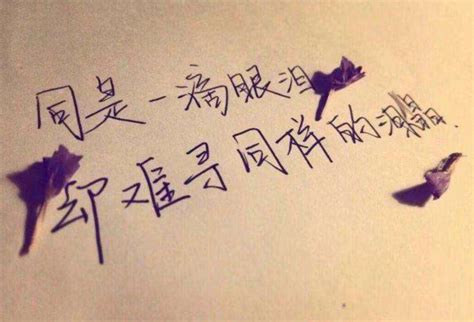 同是一滴眼泪
却难寻同样的晶